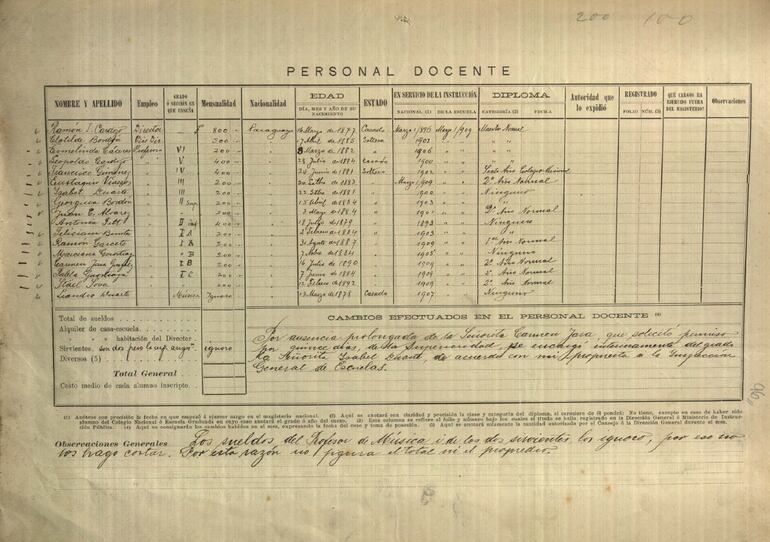 200 100
PERSONAL DOCENTE
NOMBRE Y APELLIDO Empleo GRADO Ó SECCIÓN EN QUE ENSEÑA Mensualidad Nacionalidad EDAD DÍA, MES Y AÑO DE SU NACIMIENTO ESTADO EN SERVICIO DE LA INSTRUCCIÓN NACIONAL (1) DE LA ESCUELA DIPLOMA CATEGORÍA (2) FECHA Autoridad que lo expidió REGISTRADO FOLIO NÚM. (3) QUÉ CARGOS HA EJERCIDO FUERA DEL MAGISTERIO? Observaciones
Ramón I. Cardozo Director 800 Paraguaya 16 Mayo de 1877 Casado Marzo 1896 Mayo 1909 Maestro Normal
Clotilde Bordón Vice Dir. 200 " 1885 Soltera 1902 " "
Ermelinda Cáceres Profesora VI 200 " 8 Marzo de 1882 " 1906 " "
Leopoldo Cardozo V 400 " 23 Julio de 1884 Casado 1900 " "
Francisco Giménez IV 400 " 24 Junio de 1881 Soltero 1902
III 200 " 1883 " Mayo 1909 2º Año Normal
Isabel Duarte III 200 " 1881 " 1900 Ninguno
Georgina Bordón II Sup. 200 " 15 Abril de 1884 " 1903 "
Juan E. Alvarez " 200 " 3 Mayo de 1884 " 1901 2º Año Normal
Antonia II inf. 400 " 18 Julio de 1874 " 1893 Ninguno
Feliciana I A 200 " 2 Febrero de 1884 " 1903 "
Ramón I A 200 " 31 Agosto de 1887 " 1909 1er Año Normal
Marciana " B 200 " 1884 " 1905 Ninguno
Carmen Jara I B 200 " 16 Julio de 1890 " 1909 2º Año Normal
Pabla I C 200 " 7 Junio de 1884 " 1909 2º Año Normal
Itael Sova " 200 " 12 Febrero de 1892 " 1909 2º Año Normal
Leandro Duarte Música Ignoro " 13 Marzo de 1878 Casado 1907 Ninguno
Total de sueldos
Alquiler de casa-escuela
" habitación del Director
Sirvientes son dos pero le rep. ignoro
Diversos (5)
Total General
Costo medio de cada alumno inscripto
CAMBIOS EFECTUADOS EN EL PERSONAL DOCENTE (4)
Por ausencia prolongada de la Señorita Carmen Jara, que solicitó permiso
por quince días, de la Superioridad, se encargó interinamente del grado
la Señorita Isabel Duarte, de acuerdo con mi propuesta á la Inspección
General de Escuelas.
(1) Anótese con precisión la fecha en que empezó á ejercer cargo en el magisterio nacional. (2) Aquí se anotará con claridad y precisión la clase y categoría del diploma, si careciere de él pondrá: No tiene, excepto en caso de haber sido
alumno del Colegio Nacional ó Escuela Graduada en cuyo caso anotará el grado ó año del curso. (3) Esta columna se refiere al folio y número bajo los cuales el título se halla registrado en la Dirección General ó Ministerio de Instrucción
Pública. (4) Aquí se consignarán los cambios habidos en el mes, expresando la fecha del cese y toma de posesión. (5) Aquí se anotará solamente la cantidad autorizada por el Consejo ó la Dirección General durante el mes.
Observaciones Generales Los sueldos del Profesor de Música i de los dos sirvientes los ignoro, por eso no
los hago constar. Por esta razón no figura el total ni el promedio.